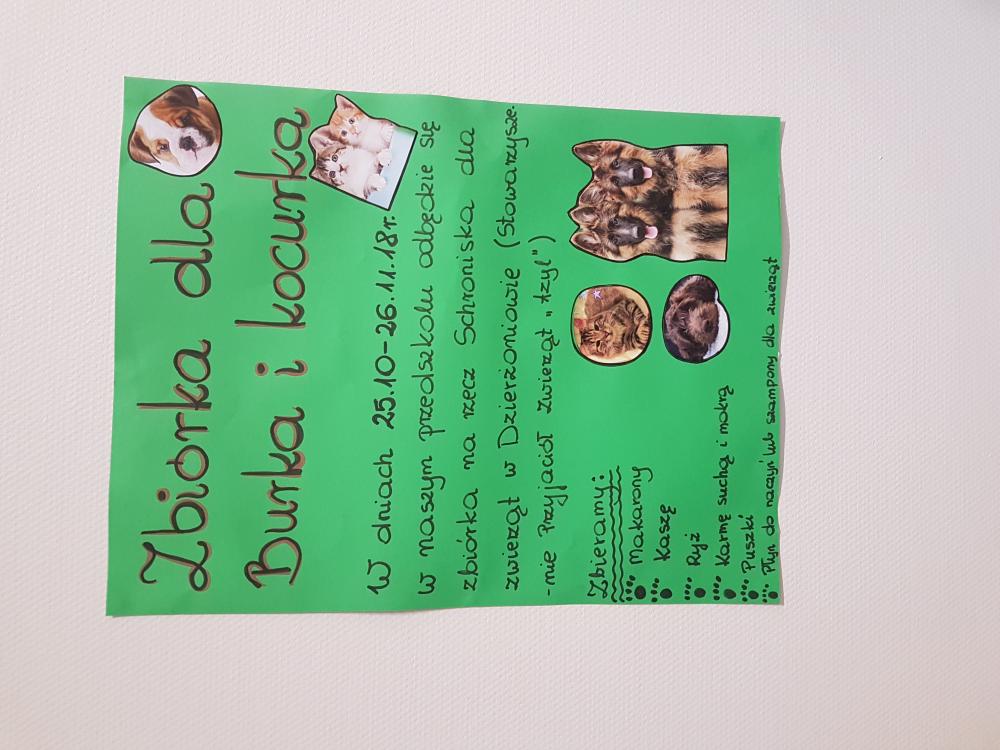 Zbiórka dla
Burka i kocurka
W dniach 25.10-26.11.18r.
w naszym przedszkolu odbędzie się
zbiórka na rzecz Schroniska dla
zwierząt w Dzierżoniowie (Stowarzysze-
-nie Przyjaciół Zwierząt „Azyl")
Zbieramy:
Makarony
Kaszę
Ryż
Karmę suchą i mokrą
Puszki
Płyn do naczyń lub szampony dla zwierząt